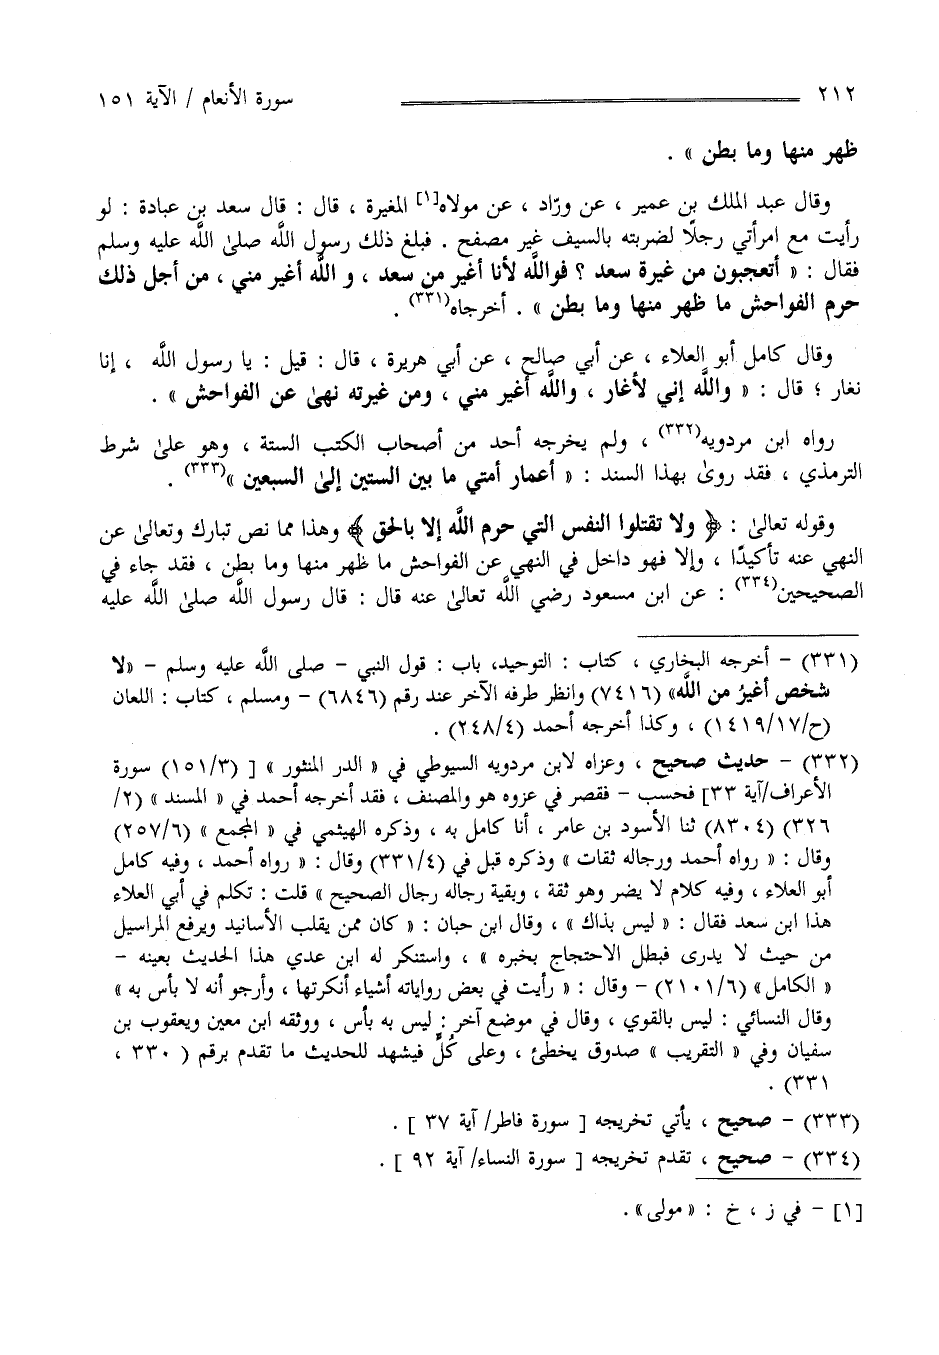 ٢١٢ سورة الأنعام / الآية ١٥١
ظهر منها وما بطن » .
وقال عبد الملك بن عمير ، عن ورّاد ، عن مولاه[١] المغيرة ، قال : قال سعد بن عبادة : لو
رأيت مع امرأتي رجلًا لضربته بالسيف غير مصفح . فبلغ ذلك رسول اللَّه صلىٰ اللَّه عليه وسلم
فقال : « أتعجبون من غيرة سعد ؟ فواللَّه لأنا أغير من سعد ، و اللَّه أغير مني ، من أجل ذلك
حرم الفواحش ما ظهر منها وما بطن » . أخرجاه(٣٣١) .
وقال كامل أبو العلاء ، عن أبي صالح ، عن أبي هريرة ، قال : قيل : يا رسول اللَّه ، إنا
نغار ؛ قال : « واللَّه إني لأغار ، واللَّه أغير مني ، ومن غيرته نهىٰ عن الفواحش » .
رواه ابن مردويه(٣٣٢) ، ولم يخرجه أحد من أصحاب الكتب الستة ، وهو علىٰ شرط
الترمذي ، فقد روىٰ بهذا السند : « أعمار أمتي ما بين الستين إلىٰ السبعين »(٣٣٣) .
وقوله تعالىٰ : ﴿ ولا تقتلوا النفس التي حرم اللَّه إلا بالحق ﴾ وهذا مما نص تبارك وتعالىٰ عن
النهي عنه تأكيدًا ، وإلا فهو داخل في النهي عن الفواحش ما ظهر منها وما بطن ، فقد جاء في
الصحيحين(٣٣٤) : عن ابن مسعود رضي اللَّه تعالىٰ عنه قال : قال رسول اللَّه صلىٰ اللَّه عليه
(٣٣١) - أخرجه البخاري ، كتاب : التوحيد، باب : قول النبي - صلى اللَّه عليه وسلم - «لا
شخص أغيرُ من اللَّه» (٧٤١٦) وانظر طرفه الآخر عند رقم (٦٨٤٦) - ومسلم ، كتاب : اللعان
(ح/١٤١٩/١٧) ، وكذا أخرجه أحمد (٢٤٨/٤) .
(٣٣٢) - حديث صحيح ، وعزاه لابن مردويه السيوطي في « الدر المنثور » [ (١٥١/٣) سورة
الأعراف/آية ٣٣] فحسب - فقصر في عزوه هو والمصنف ، فقد أخرجه أحمد في « المسند » (٢/
٣٢٦) (٨٣٠٤) ثنا الأسود بن عامر ، أنا كامل به ، وذكره الهيثمي في « المجمع » (٢٥٧/٦)
وقال : « رواه أحمد ورجاله ثقات » وذكره قبل في (٣٣١/٤) وقال : « رواه أحمد ، وفيه كامل
أبو العلاء ، وفيه كلام لا يضر وهو ثقة ، وبقية رجاله رجال الصحيح » قلت : تكلم في أبي العلاء
هذا ابن سعد فقال : « ليس بذاك » ، وقال ابن حبان : « كان ممن يقلب الأسانيد ويرفع المراسيل
من حيث لا يدرى فبطل الاحتجاج بخبره » ، واستنكر له ابن عدي هذا الحديث بعينه -
« الكامل» (٢١٠١/٦) - وقال : « رأيت في بعض رواياته أشياء أنكرتها ، وأرجو أنه لا بأس به »
وقال النسائي : ليس بالقوي ، وقال في موضع آخر : ليس به بأس ، ووثقه ابن معين ويعقوب بن
سفيان وفي « التقريب » صدوق يخطئ ، وعلى كُلٍّ فيشهد للحديث ما تقدم برقم ( ٣٣٠ ،
٣٣١) .
(٣٣٣) - صحيح ، يأتي تخريجه [ سورة فاطر/ آية ٣٧ ] .
(٣٣٤) - صحيح ، تقدم تخريجه [ سورة النساء/ آية ٩٢ ] .
[١] - في ز ، خ : «مولى» .